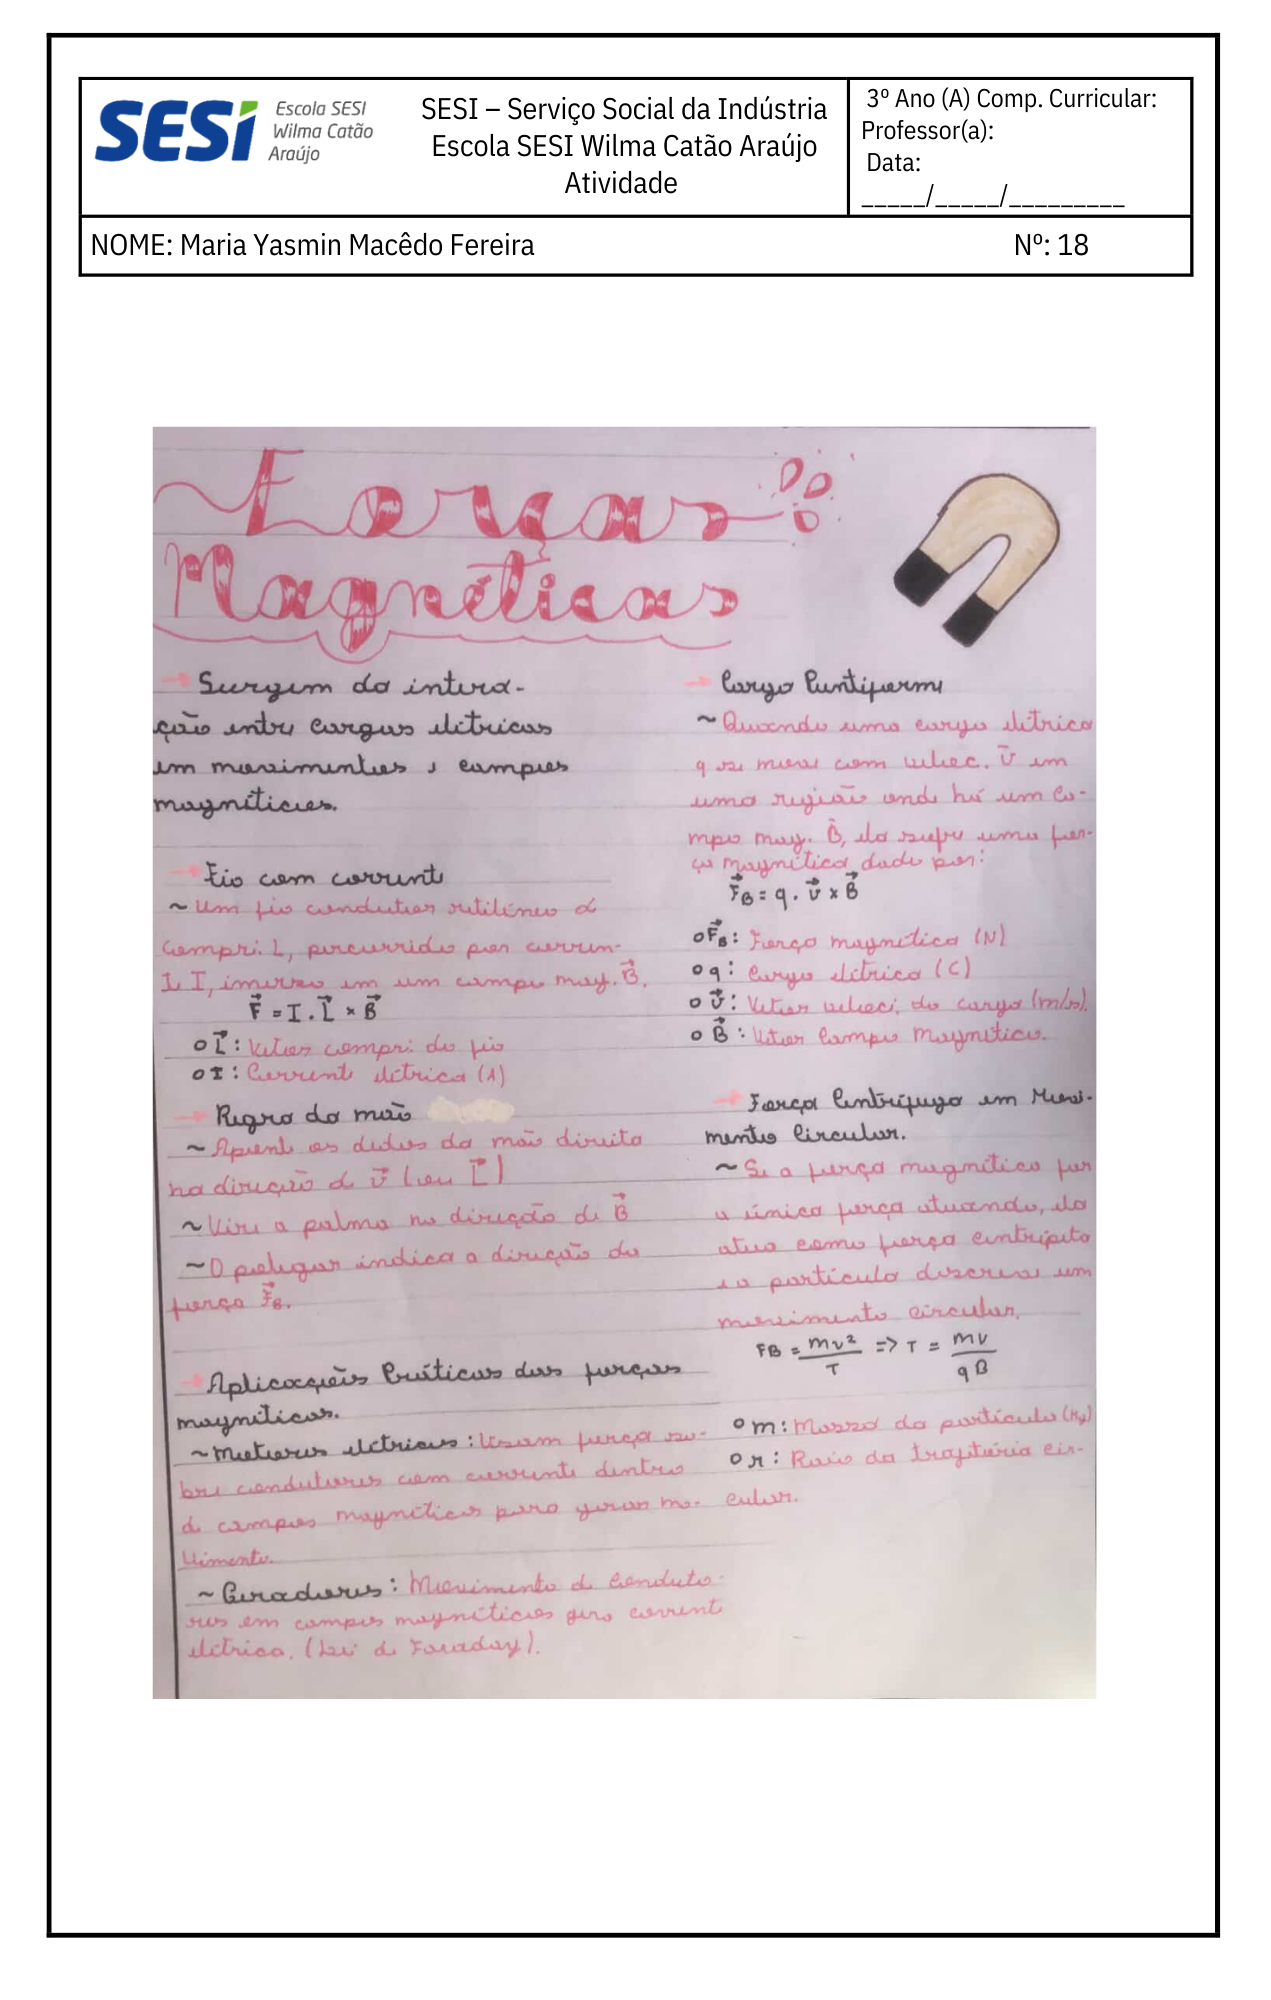 SESI
Escola SESI
Wilma Catão
Araújo
SESI – Serviço Social da Indústria
Escola SESI Wilma Catão Araújo
Atividade
3º Ano (A) Comp. Curricular:
Professor(a):
Data:
_____/_____/_________
NOME: Maria Yasmin Macêdo Fereira Nº: 18
Forças
Magnéticas
→ Surgem da intera-
ção entre cargas elétricas
em movimentos e campos
magnéticos.
→ Fio com corrente
~ Um fio condutor retilíneo de
compri. L, percorrido por corren-
te I, imerso em um campo mag. B⃗.
F⃗ = I . L⃗ × B⃗
o L⃗: Vetor compri. do fio
o I: Corrente elétrica (A)
→ Regra da mão
~ Aponte os dedos da mão direita
na direção de v⃗ (ou L⃗)
~ Vire a palma na direção de B⃗
~ O polegar indica a direção da
força F⃗B.
→ Aplicações Práticas das forças
magnéticas.
~ Motores elétricos: Usam força so-
bre condutores com corrente dentro
de campos magnéticos para gerar mo-
vimento.
~ Geradores: Movimento de conduto-
res em campos magnéticos gera corrente
elétrica. (Lei de Faraday).
→ Carga Puntiforme
~ Quando uma carga elétrica
q se move com veloc. v⃗ em
uma região onde há um ca-
mpo mag. B⃗, ela sofre uma for-
ça magnética dada por:
F⃗B = q . v⃗ × B⃗
o F⃗B: Força magnética (N)
o q: Carga elétrica (C)
o v⃗: Vetor veloci. da carga (m/s).
o B⃗: Vetor Campo Magnético.
→ Força Centrífuga em Movi-
mento Circular.
~ Se a força magnética for
a única força atuando, ela
atua como força centrípeta
e a partícula descreve um
movimento circular.
FB = mv²/T => T = mv/qB
o m: Massa da partícula (Kg)
o r: Raio da trajetória cir-
cular.